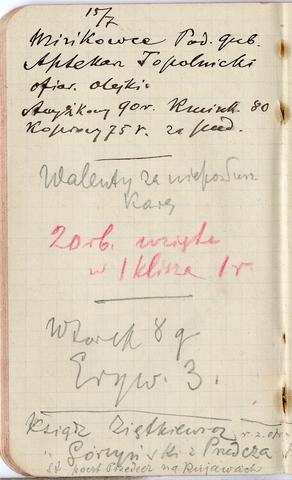 15/7
Mińkowce Pod. gub.
Aptekarz Topolnicki
ofiar. olejki
Anyżkowy 90 r. Kmink. 80
Koprowy 75 r. za pud.
Walenty za nieposłusz
karę
20 rb. wzięte
w 1 klisza 1 r
Wtorek 8 g
Eryw. 3.
Ksiądz Ziętkiewicz
" Górzyński z Przedcza
st poczt Przedecz na Kujawach